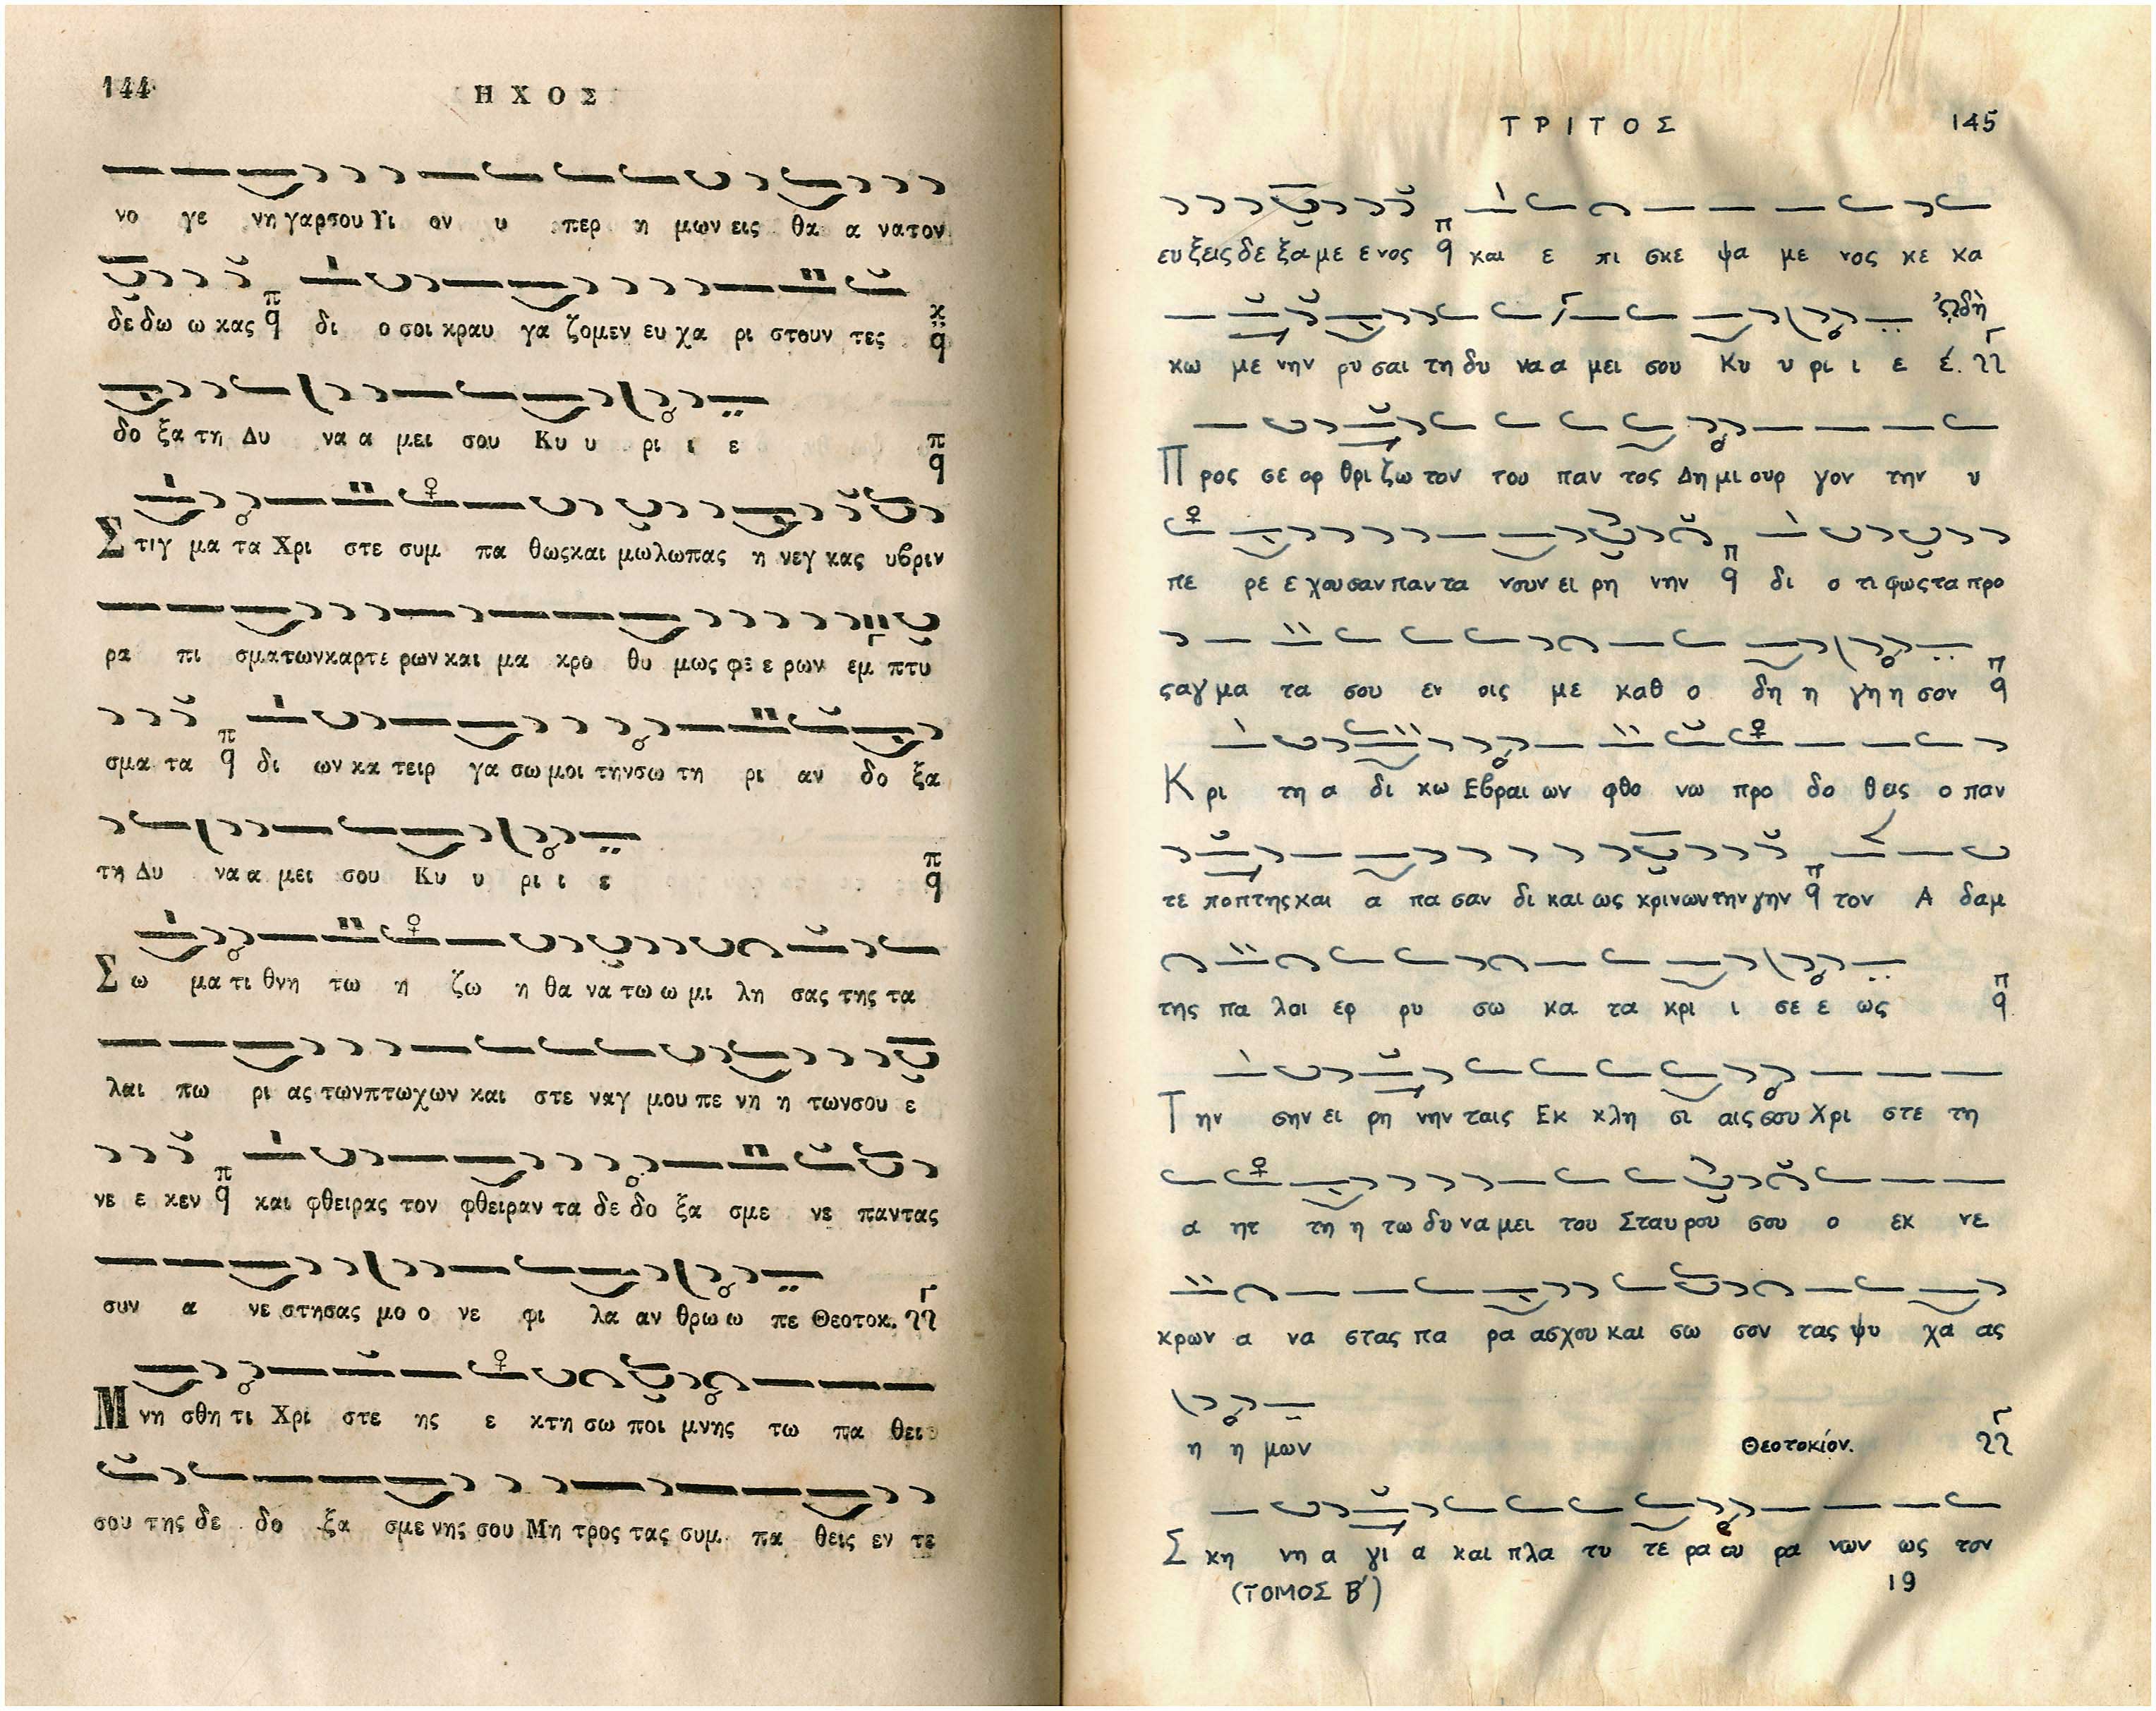 144
ΗΧΟΣ
νο γε νη γαρ σου Υι ον υ περ η μων εις θα α νατον
δε δω ω κας π q δι ο σοι κραυ γα ζομεν ευ χα ρι στουν τες κ q
δο ξα τη Δυ να α μει σου Κυ υ ρι ι ε π q
Στιγ μα τα Χρι στε συμ πα θως και μωλωπας η νεγ κας υβριν
ρα πι σματων καρτε ρων και μα κρο θυ μως φε ε ρων εμ πτυ
σμα τα π q δι ων κα τειρ γα σω μοι την σω τη ρι αν δο ξα
τη Δυ να α μει σου Κυ υ ρι ι ε π q
Σω μα τι θνη τω η ζω η θα να τω ω μι λη σας της τα
λαι πω ρι ας των πτωχων και στε ναγ μου πε νη η των σου ε
νε ε κεν π q και φθειρας τον φθειραν τα δε δο ξα σμε νε παντας
συν α νε στησας μο ο νε φι λα αν θρω ω πε Θεοτοκ. Γ
Μνη σθη τι Χρι στε ης ε κτη σω ποι μνης τω πα θει
σου της δε δο ξα σμε νης σου Μη τρος τας συμ πα θεις εν τε
ΤΡΙΤΟΣ
145
ευ ξεις δε ξα με ε νος π q και ε πι σκε ψα με νος κε κα
κω με νην ρυ σαι τη δυ να α μει σου Κυ υ ρι ι ε Ὠδὴ έ. Γ
Προς σε ορ θρι ζω τον του παν τος Δη μι ουρ γον την υ
πε ρε ε χου σαν παν τα νουν ει ρη νην π q δι ο τι φως τα προ
ςαγ μα τα σου εν οις με καθ ο δη η γη η σον π q
Κρι τη α δι κω Εβραι ων φθο νω προ δο θεις ο παν
τε ποπτης και α πα σαν δι και ως κρινων την γην π q τον Α δαμ
της πα λαι ερ ρυ σω κα τα κρι ι σε ε ως π q
Την σην ει ρη νην ταις Εκ κλη σι αις σου Χρι στε τη
α ητ τη η τω δυ να μει του Σταυ ρου σου ο εκ νε
κρων α να στας πα ρα ασχου και σω σον τας ψυ χα ας
η η μων Θεοτοκίον. Γ
Σκη νη α γι α και πλα τυ τε ρα ου ρα νων ως τον
(ΤΟΜΟΣ Β΄) 19